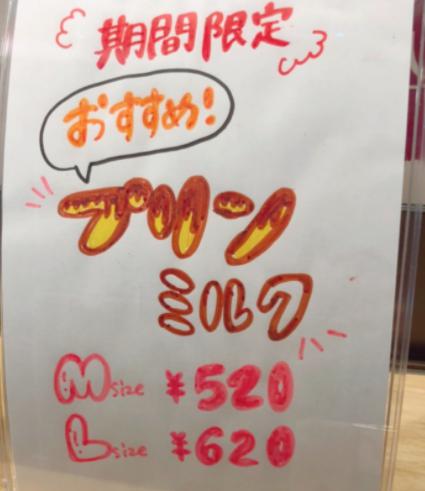 期間限定
おすすめ!
プリン
ミルク
Msize ¥520
Lsize ¥620